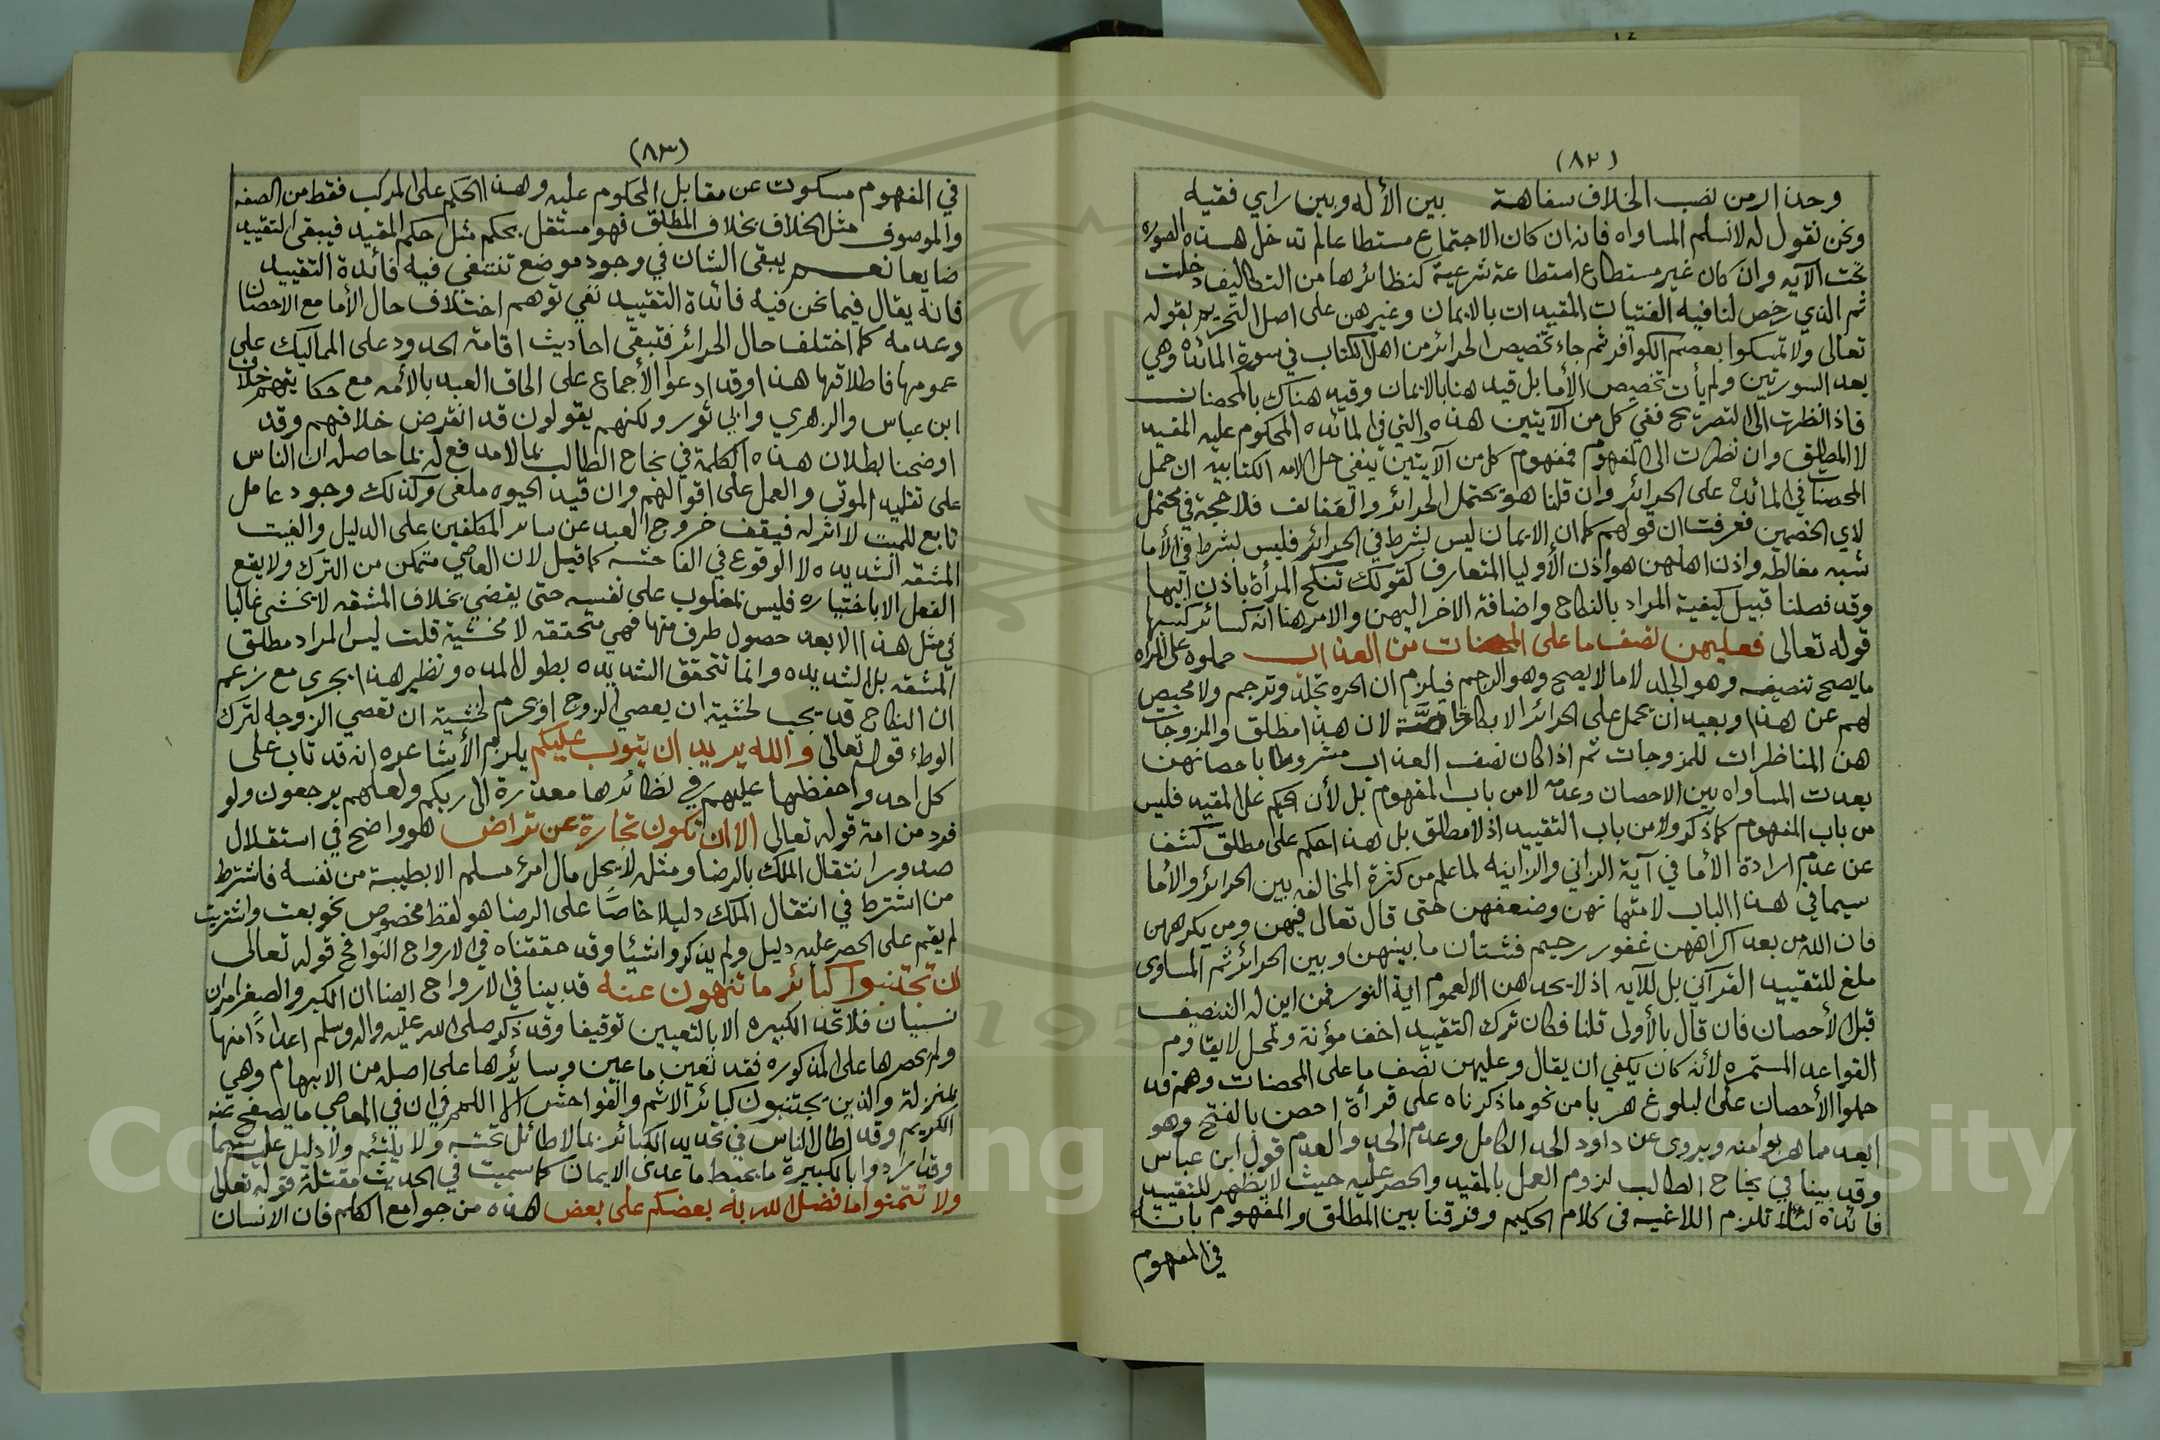 (٨٢)
وحذار من نصب الخلاف سفاهة بين الأله وبين راي فقيه
ونحن نقول له لانسلم المساواه فانه ان كان الاجتماع مستطاعا لم تدخل هذه الصوره
تحت الآيه وان كان غير مستطاع استطاعة شرعية كنظائرها من التكاليف دخلت
ثم الذي رخص لنا فيه الفتيات المقيدات بالايمان وغيرهن على اصل التحريم لقوله
تعالى ولا تمسكوا بعصم الكوافر ثم جاء تخصيص الحرائر من اهل الكتاب في سورة المائده وهي
بعد السورتين ولم يأت تخصيص الأما بل قيد هنا بالايمان وقيد هناك بالمحصنات
فاذا نظرت الى التصريح ففي كل من الآيتين هذه والتي في المائده المحكوم عليه المقيد
لا المطلق وان نظرت الى المفهوم فمفهوم كل من الآيتين ينفي حل الامه الكتابيه ان حمل
المحصنات في المائده على الحرائر وان قلنا هو يحتمل الحرائر والعفائف فلا حجة في محتمل
لاي الخصمين فعرفت ان قولهم كما ان الايمان ليس بشرط في الحرائر فليس بشرط في الأما
شبه مغالطه واذن اهلهن هو اذن الأوليا المتعارف كقولك تنكح المرأة باذن ابيها
وقد فصلنا قبيل كيفية المراد بالنكاح واضافة الاخر اليهن والامر هنا انه كسائر كسبها
قوله تعالى فعليهن نصف ما على المحصنات من العذاب حملوه على المراه
ما يصح تنصيفه وهو الجلد لا ما لا يصح وهو الرجم فيلزم ان الحره تجلد وترجم ولا محيص
لهم عن هذا وبعيد ان يحمل على الحرائر الابكار خاصة لان هذا مطلق والمزوجات
هن المناظرات للمزوجات ثم اذا كان نصف العذاب مشروطا باحصانهن
بعدت المساواه بين الاحصان وعدمه لا من باب المفهوم بل لأن الحكم على المقيد فليس
من باب المفهوم كما ذكر ولا من باب التقييد اذ لا مطلق بل هذا الحكم على مطلق كشف
عن عدم ارادة الأما في آية الزاني والزانيه لما علم من كثرة المخالفه بين الحرائر والأما
سيما في هذا الباب لامتهانهن وضعفهن حتى قال تعالى فيهن ومن يكرههن
فان الله من بعد اكراههن غفور رحيم فشتان ما بينهن وبين الحرائر ثم المساوى
ملغ للتقييد القرآني بل للآيه اذ لا يجد هن الا لعموم اية النور فمن اين له التنصيف
قبل الأحصان فان قال بالأولى قلنا فكان ترك التقييد اخف مؤنة وتمحل لا يقاوم
القواعد المستمره لأنه كان يكفي ان يقال وعليهن نصف ما على المحصنات وهم قد
حملوا الأحصان على البلوغ هربا من نحو ما ذكرناه على قرأة احصن بالفتح وهو
ابعد مما هربوا منه ويروى عن داود الحد الكامل وعدم الحد والعدم قول ابن عباس
وقد بينا في نجاح الطالب لزوم العمل بالمقيد والحصر عليه حيث لا يظهر للتقييد
فائده لئلا تلزم اللاغيه في كلام الحكيم وفرقنا بين المطلق والمفهوم بانه
في المفهوم
(٨٣)
في المفهوم مسكوت عن مقابل المحكوم عليه وهذا الحكم على المركب فقط من الصفه
والموصوف مثل الخلاف بخلاف المطلق فهو مستقل بحكم مثل حكم المقيد فيبقى التقييد
ضايعا نعم يبقى الشان في وجود موضع تنتفي فيه فائدة التقييد
فانه يقال فيما نحن فيه فائدة التقييد نفي توهم اختلاف حال الأما مع الاحصان
وعدمه كما اختلف حال الحرائر فتبقى احاديث اقامة الحدود على المماليك على
عمومها فاطلاقها هذا وقد ادعوا الأجماع على الحاق العبد بالأمه مع حكايتهم خلاف
ابن عباس والزهري وابي ثور ولكنهم يقولون قد انقرض خلافهم وقد
اوضحنا بطلان هذه الكلمة في نجاح الطالب بما لا مدفع له بما حاصله ان الناس
على تقليد الموتى والعمل على اقوالهم وان قيد الحيوه ملغى وكذلك وجود عامل
تابع للميت لا اثر له فيقف خروج العبد عن سائر المكلفين على الدليل والعنت
المشقه الشديده لا الوقوع في الفاحشه كما قيل لان العاصي متمكن من الترك ولا يقع
الفعل الا باختياره فليس بمغلوب على نفسه حتى يقضي بخلاف المشقه لا يخشى غالبا
في مثل هذا الا بعد حصول طرف منها فهي متحققه لا مخشية قلت ليس المراد مطلق
المشقه بل الشديده وانما تتحقق الشديده بطول المده ونظير هذا يجرى مع زعم
ان النكاح قد يجب لخشية ان يعصي الزوج او يحرم لخشية ان تعصي الزوجه لترك
الوطء قوله تعالى والله يريد ان يتوب عليكم يلزم الأشاعره انه قد تاب على
كل احد واحفظها عليهم في نظائرها معذرة الى ربكم ولعلهم يرجعون ولو
فرد من امة قوله تعالى الا ان تكون تجارة عن تراض هو واضح في استقلال
صدور انتقال الملك بالرضا ومثله لا يحل مال امرء مسلم الا بطيبة من نفسه فاشترط
من اشترط في انتقال الملك دليلا خاصا على الرضا هو لفظ مخصوص نحو بعت واشتريت
لم يقم على الحصر عليه دليل ولم يذكروا شيئا وقد حققناه في الارواح النوافح قوله تعالى
ان تجتنبوا كبائر ما تنهون عنه قد بينا في الارواح ايضا ان الكبر والصغر امران
نسبيان فلا تحد الكبيره الا بالتعيين توقيفا وقد ذكر صلى الله عليه واله وسلم اعدادا منها
ولم يحصرها على المذكوره فقد تعين ما عين وسائرها على اصله من الابهام وهي
بمنزلة والذين يجتنبون كبائر الاثم والفواحش الا اللمم في ان في المعاصي ما يصفح عنه
الكريم وقد اطال الناس في تحديد الكبائر بما لا طائل تحته ولا يلتئم ولا دليل عليه سيما
وقد ارادوا بالكبيرة ما يحبط ما عدى الايمان كما سميت في الحديث مقتلة قوله تعالى
ولا تتمنوا ما فضل الله به بعضكم على بعض هذه من جوامع الكلم فان الانسان
1957